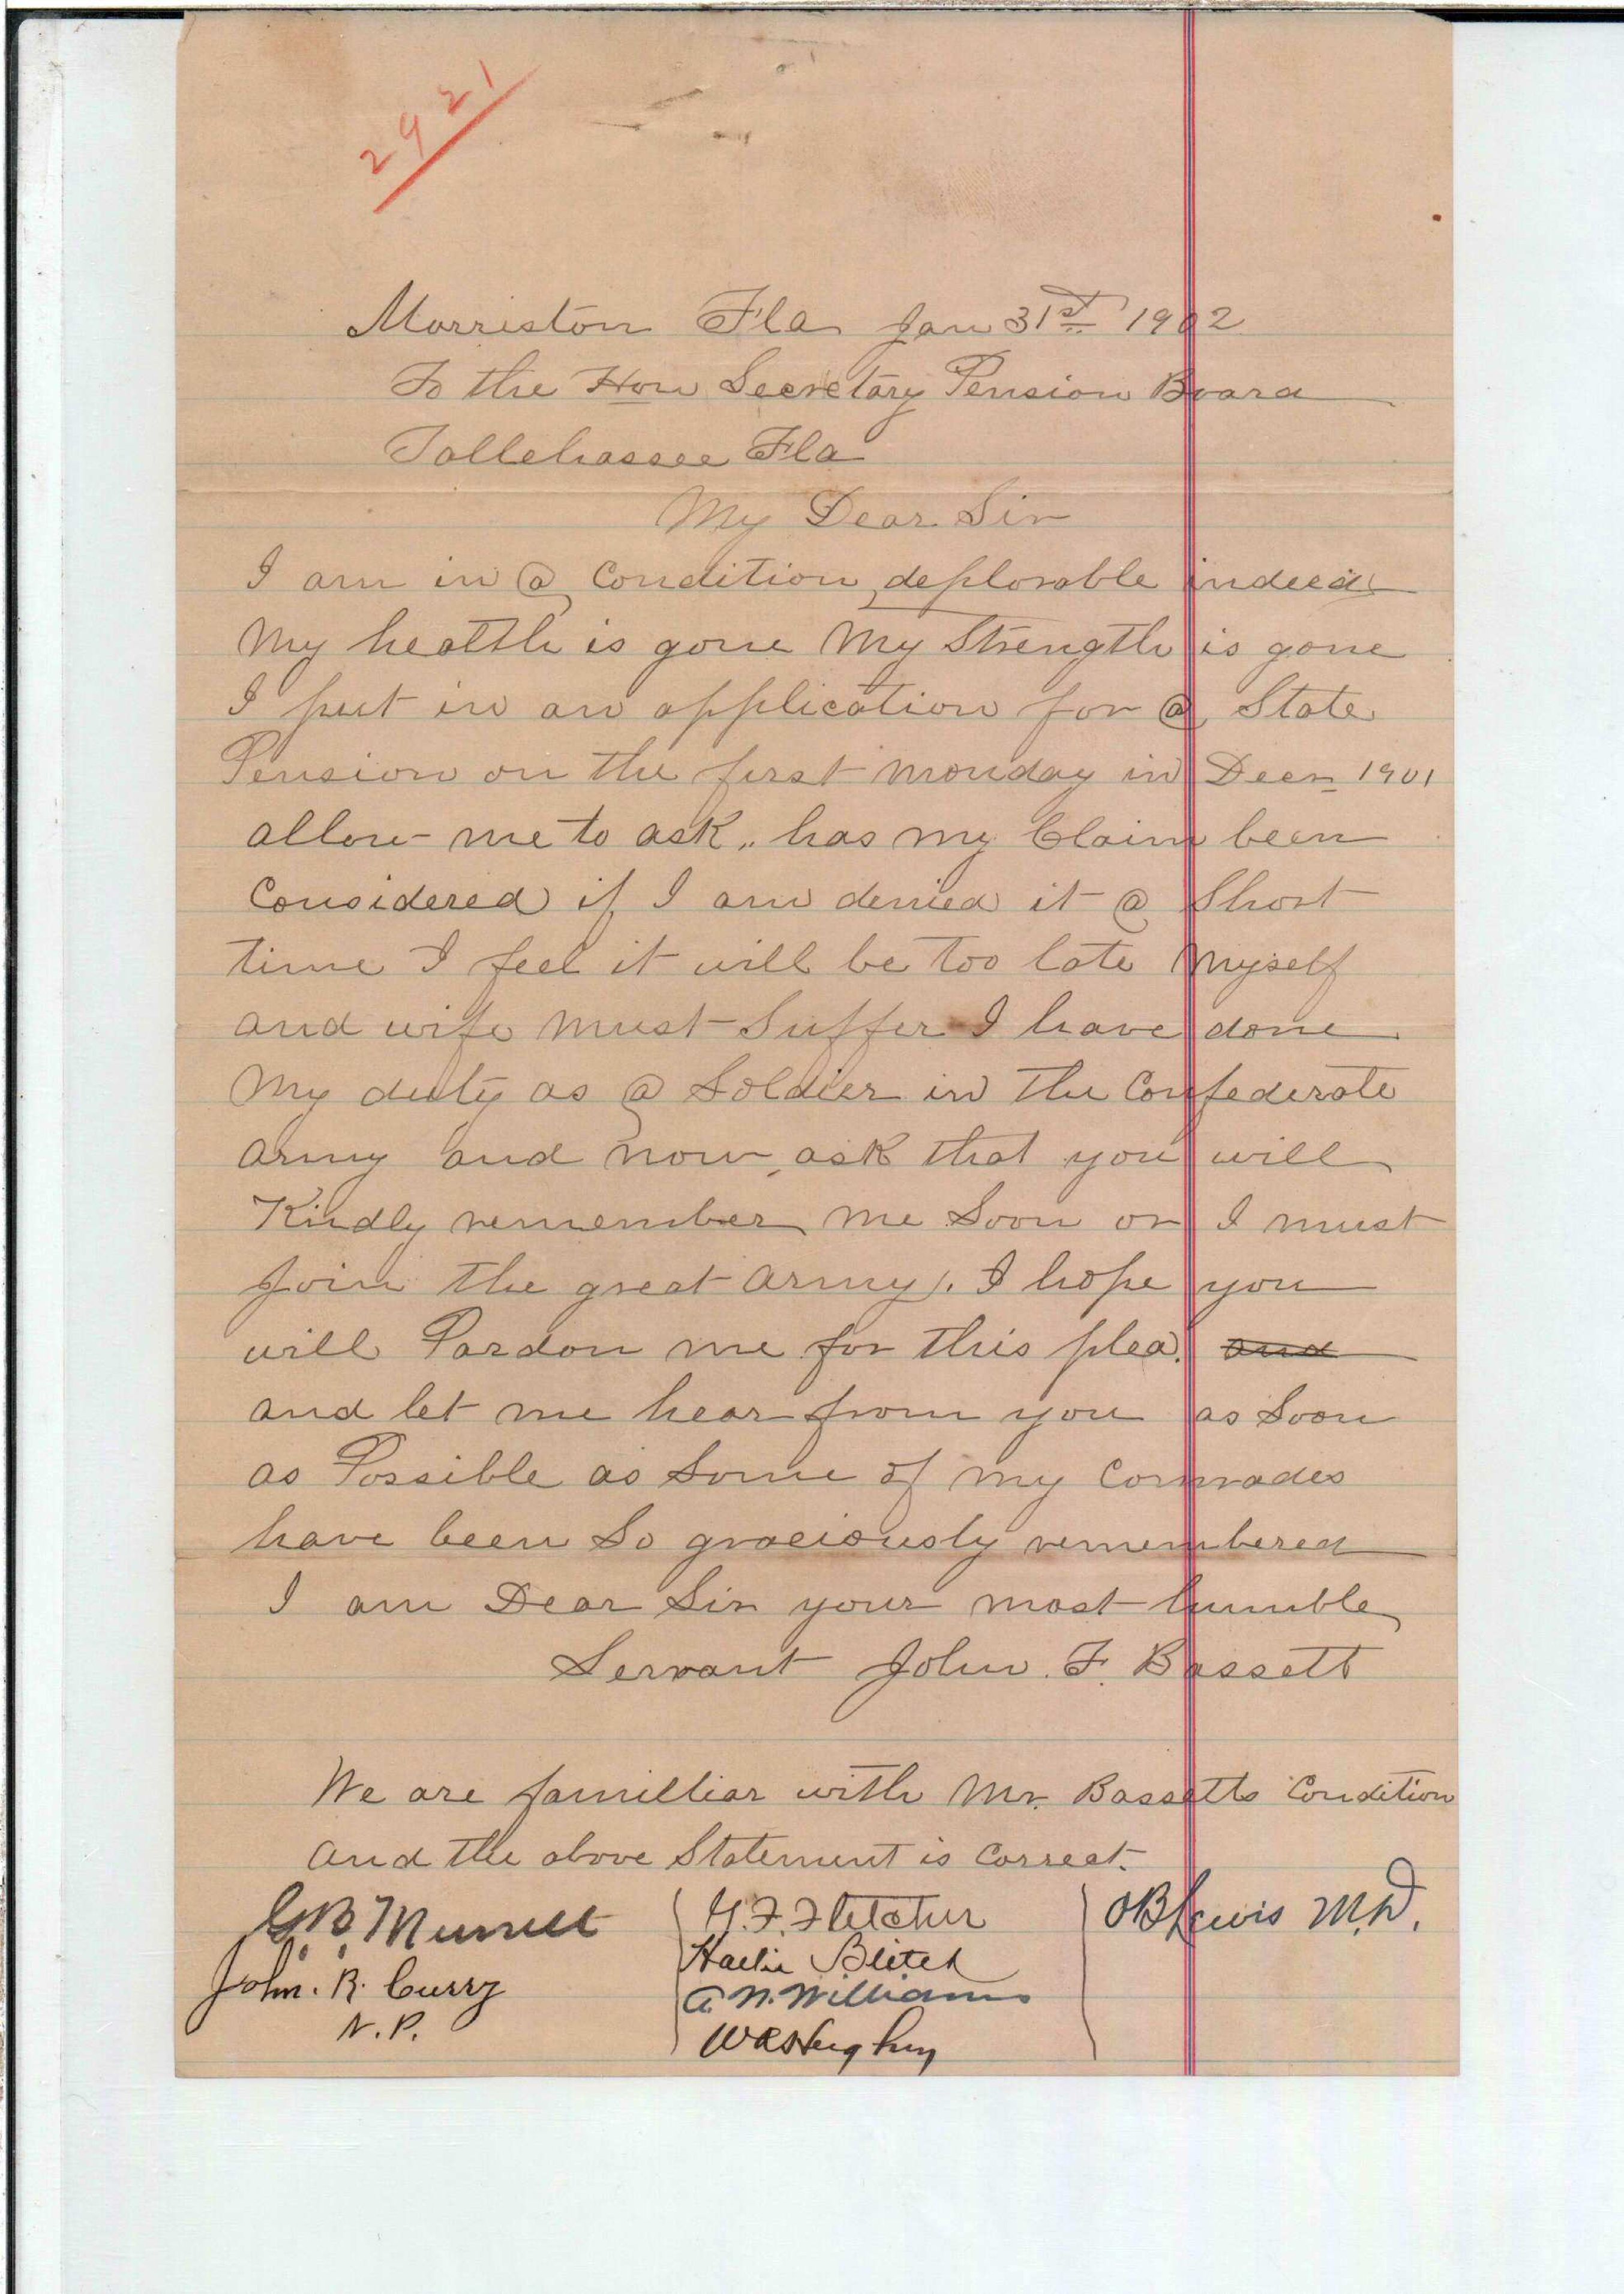 2921
Morriston Fla Jan 31st 1902
To the Hon Secretary Pension Board
Tallehassee Fla
My Dear Sir
I am in @ Condition deplorable indeed
My health is gone My Strength is gone
I put in an application for @ State
Pension on the first Monday in Decr 1901
allow me to ask " has my Claim been
Considered if I am denied it @ Short
time I feel it will be too late Myself
and wife Must Suffer I have done
My duty as @ Soldier in the Confederate
army and now ask that you will
Kindly remember me Soon or I must
Join the great army. I hope you
will Pardon me for this plea. and
and let me hear from you as Soon
as Possible as Some of my Comrades
have been So graciously remembered
I am Dear Sir your most humble
Servant John. F. Bassett
We are familliar with Mr. Bassetts Condition
and the above Statement is Correct.
G.B. Murrell
John. R. Curry
N.P.
Fletcher
Blitch
A. N. Williams
OB Lewis M.D.